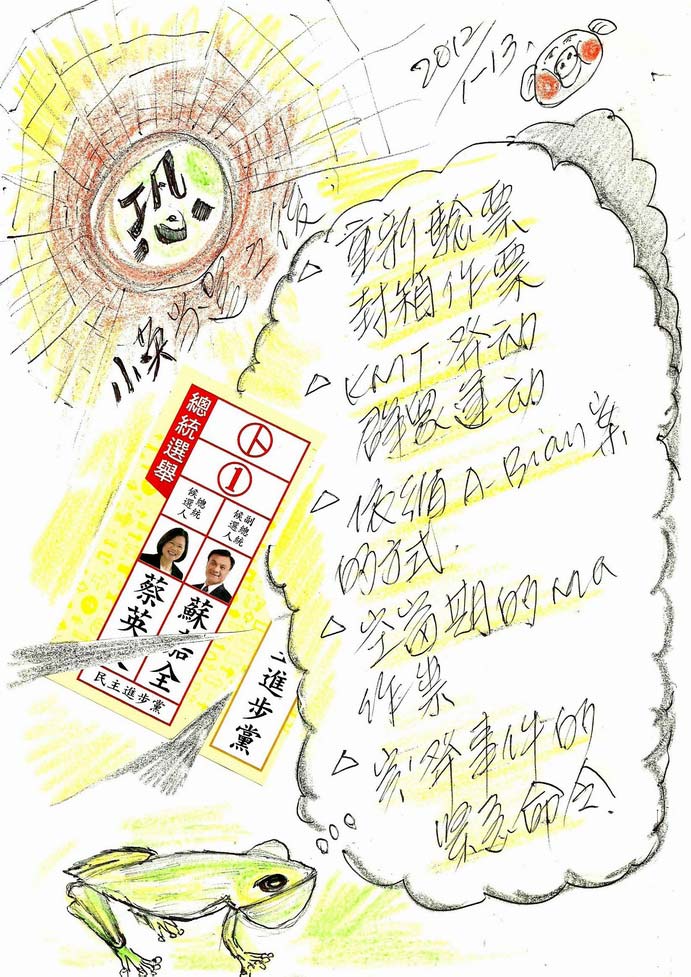 2012/1-13
恐
小英當選之後
▷ 重新驗票
封箱作票
▷ KMT.發动
群眾運动
▷ 依循A-Bian案
的方式.
▷ 空窗期的Ma
作業
▷ 突發事件的
緊急命令
總統選舉
1
總統候選人
副總統候選人
蔡英
蘇 全
民主進步黨
進步黨